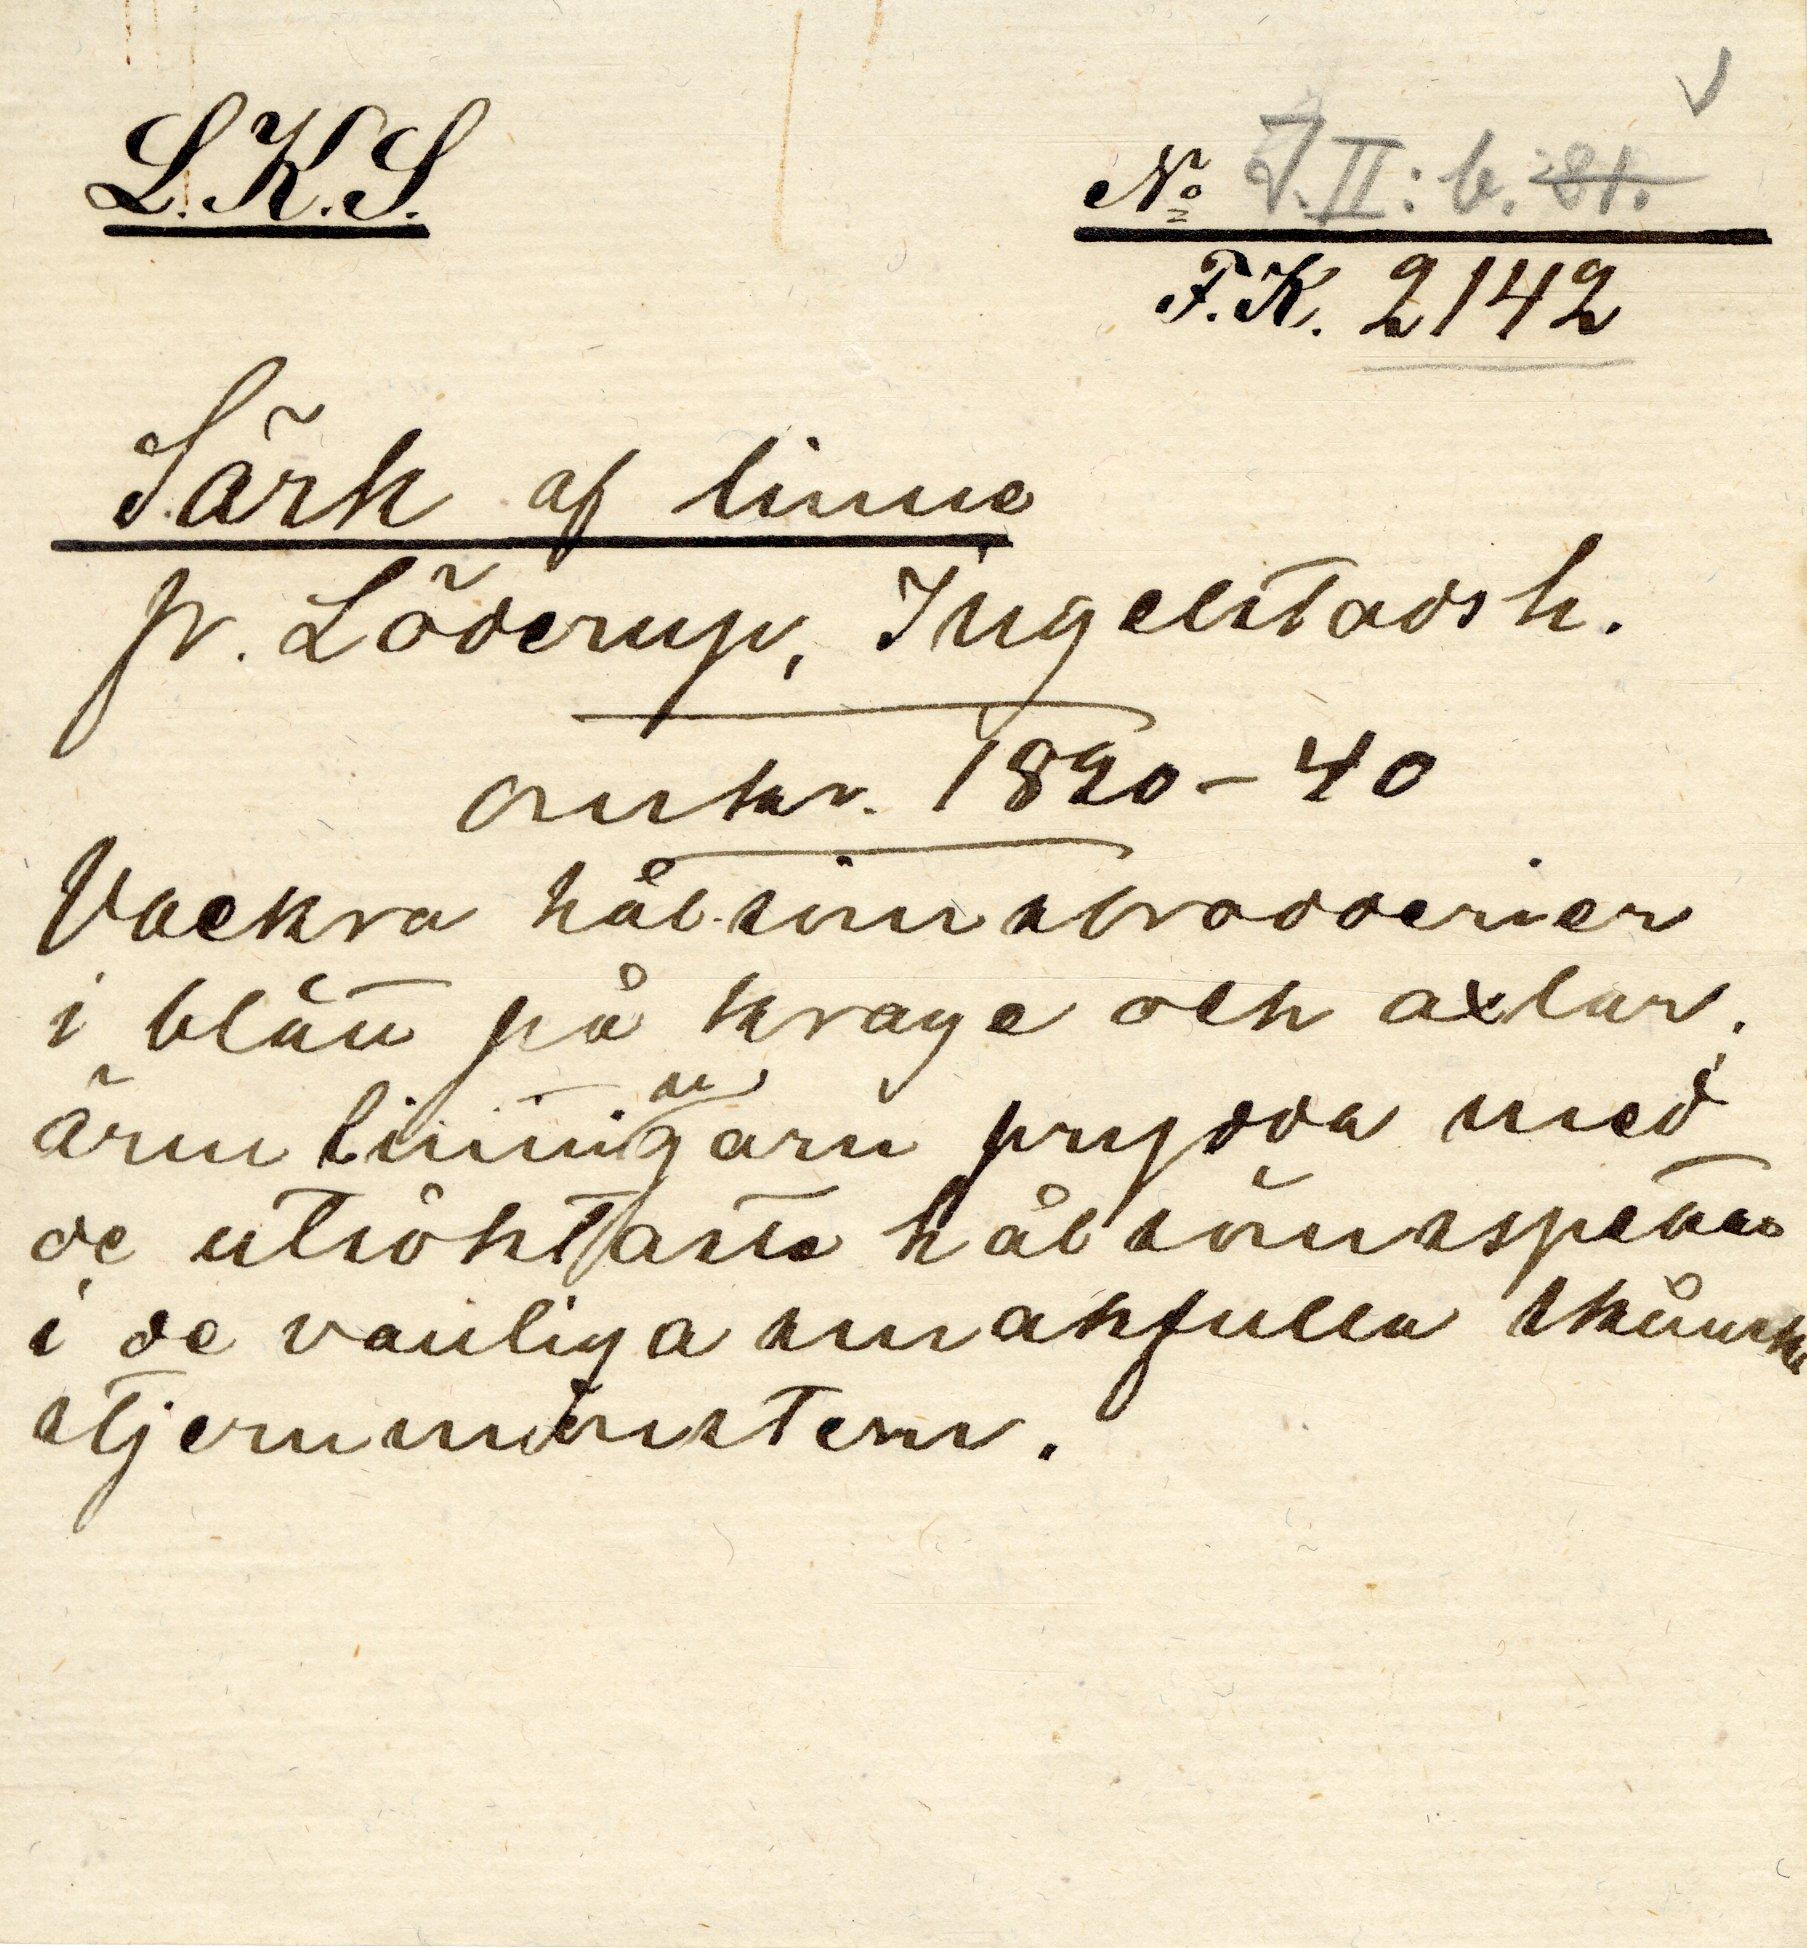 L.K.S.
No J.II:b. 81.
F.K. 2142
Särk af linne
fr. Löderup, Ingelstads h.
omkr. 1820-40
Vackra hålsömsbroderier
i blått på krage och axlar,
ärmlinningarne prydda med
de utsöktaste hålsömsspetsar
i de vanliga smakfulla skånska
stjernmönstern.